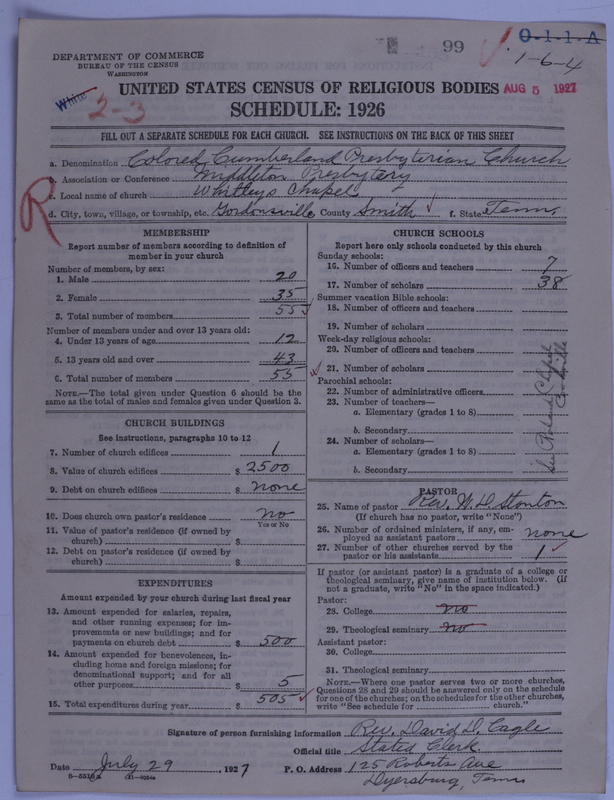 99
O-1-1-A
1-6-4
DEPARTMENT OF COMMERCE
BUREAU OF THE CENSUS
WASHINGTON
White
2-3
UNITED STATES CENSUS OF RELIGIOUS BODIES AUG 5 1927
SCHEDULE: 1926
FILL OUT A SEPARATE SCHEDULE FOR EACH CHURCH. SEE INSTRUCTIONS ON THE BACK OF THIS SHEET
R
a. Denomination Colored Cumberland Presbyterian Church
b. Association or Conference Middleton Presbytery
c. Local name of church Whitleys Chapel
d. City, town, village, or township, etc. Gordonsville County Smith f. State Tenn.
MEMBERSHIP
Report number of members according to definition of
member in your church
Number of members, by sex:
1. Male 20
2. Female 35
3. Total number of members 55
Number of members under and over 13 years old:
4. Under 13 years of age 12
5. 13 years old and over 43
6. Total number of members 55
NOTE.—The total given under Question 6 should be
same as the total of males and females given under Question 3.
CHURCH BUILDINGS
See instructions, paragraphs 10 to 12
7. Number of church edifices 1
8. Value of church edifices $ 2500
9. Debt on church edifices $ none
10. Does church own pastor's residence no
Yes or No
11. Value of pastor's residence (if owned by
church) $
12. Debt on pastor's residence (if owned by
church) $
EXPENDITURES
Amount expended by your church during last fiscal year
13. Amount expended for salaries, repairs,
and other running expenses; for im-
provements or new buildings; and for
payments on church debt $ 500
14. Amount expended for benevolences, in-
cluding home and foreign missions; for
denominational support; and for all
other purposes $ 5
15. Total expenditures during year $ 505
CHURCH SCHOOLS
Report here only schools conducted by this church
Sunday schools:
16. Number of officers and teachers 7
17. Number of scholars 38
Summer vacation Bible schools:
18. Number of officers and teachers
19. Number of scholars
Week-day religious schools:
20. Number of officers and teachers
21. Number of scholars
Parochial schools:
22. Number of administrative officers
23. Number of teachers—
a. Elementary (grades 1 to 8)
b. Secondary
24. Number of scholars—
a. Elementary (grades 1 to 8)
b. Secondary
PASTOR
25. Name of pastor Rev. W. D. Stonton
(If church has no pastor, write "None")
26. Number of ordained ministers, if any, em-
ployed as assistant pastors none
27. Number of other churches served by the
pastor or his assistants 1
If pastor (or assistant pastor) is a graduate of a college or
theological seminary, give name of institution below. (If
not a graduate, write "No" in the space indicated.)
Pastor:
28. College no
29. Theological seminary no
Assistant pastor:
30. College
31. Theological seminary
NOTE.—Where one pastor serves two or more churches,
Questions 28 and 29 should be answered only on the schedule
for one of the churches; on the schedules for the other churches,
write "See schedule for church."
Signature of person furnishing information Rev. David D. Cagle
Official title Stated Clerk
Date July 29, 1927 P. O. Address 125 Roberts Ave
Dyersburg, Tenn